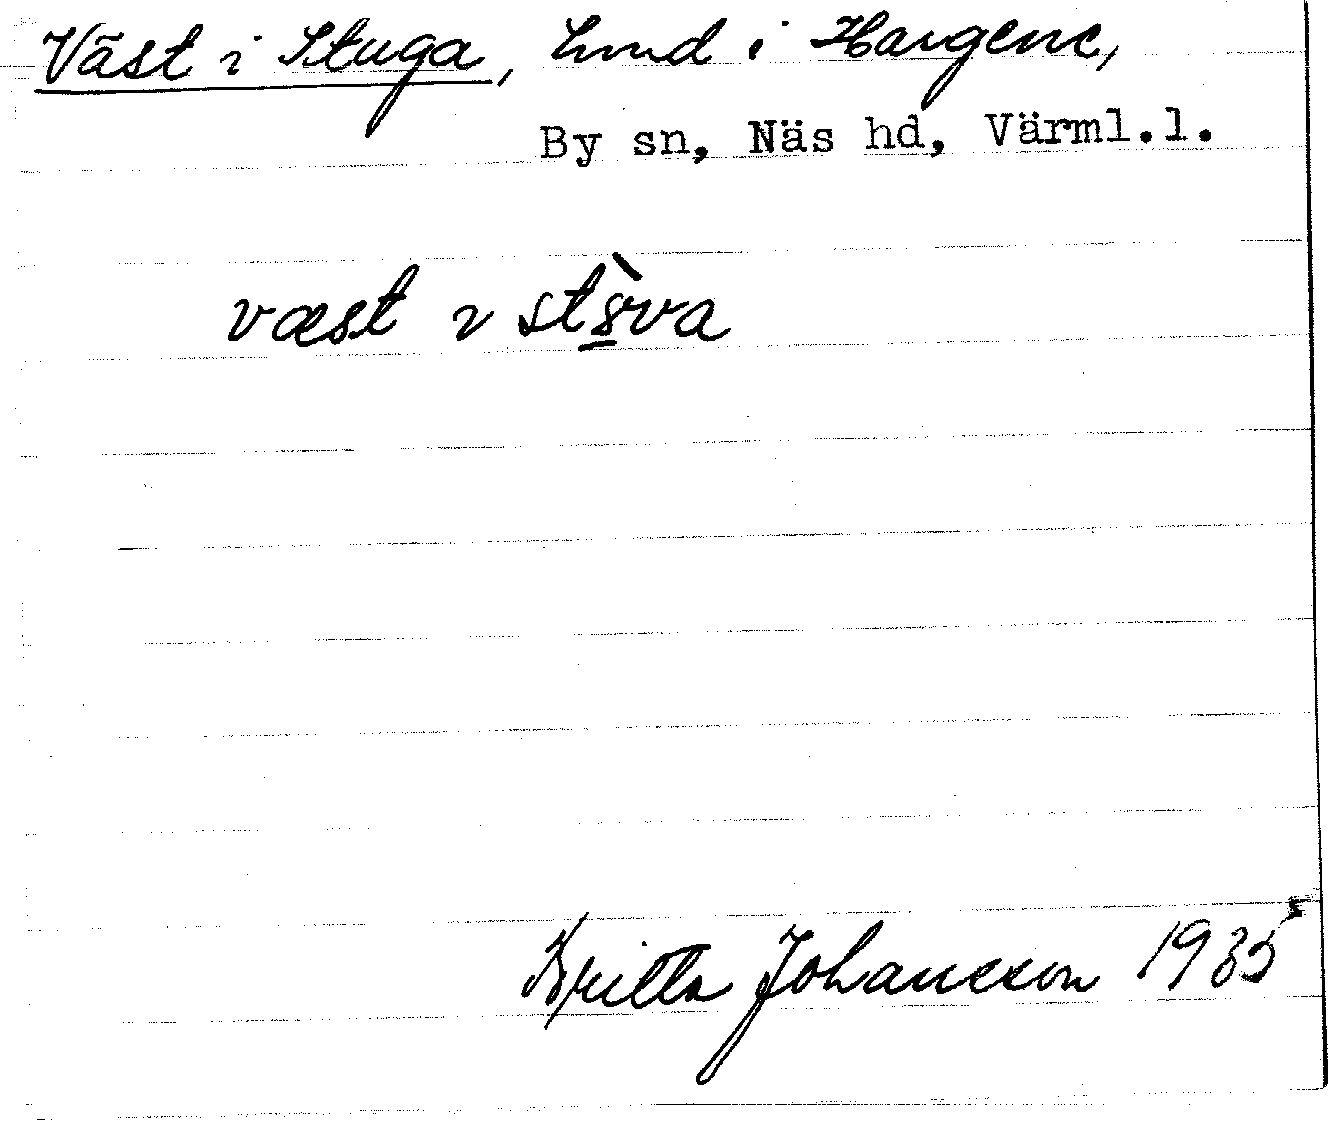 Väst i Stuga, Lund i Hargene,
By sn, Näs hd, Värml.l.
væst ɩ st8̱̀va
Britta Johansson 1935